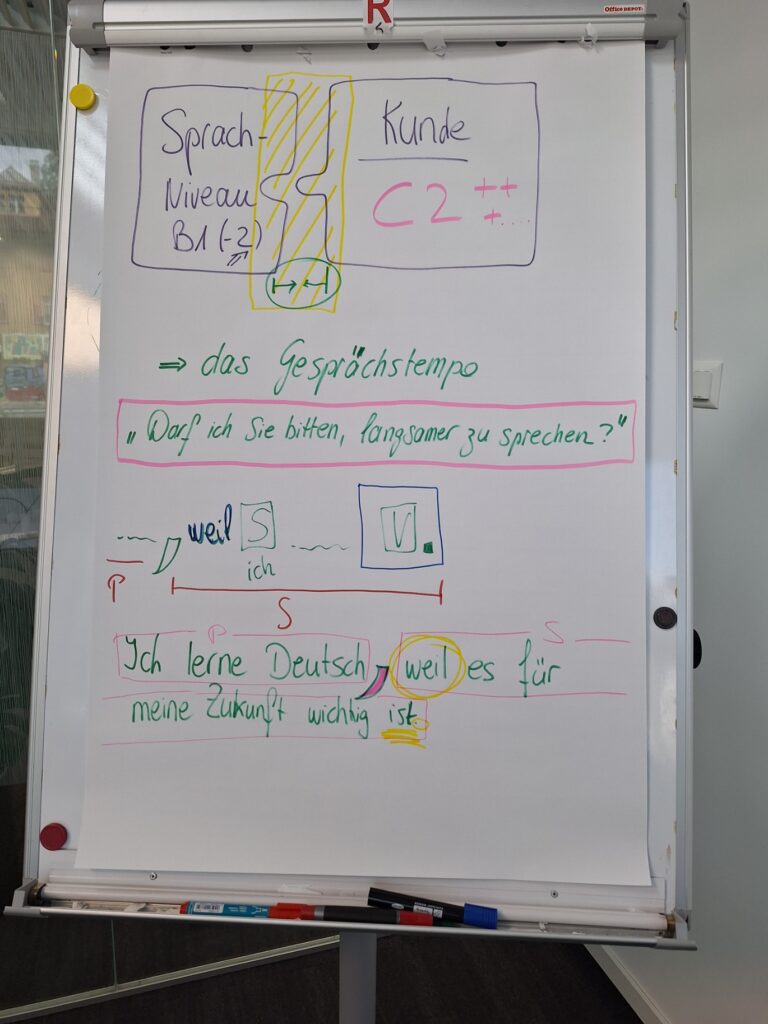 Office DEPOT
R
Sprach-
Niveau
B1 (-2)
Kunde
C2 ++
+....
⇒ das Gesprächstempo
„Darf ich Sie bitten, langsamer zu sprechen?"
...., weil S .... V.
ich
P
S
P S
Ich lerne Deutsch, weil es für
meine Zukunft wichtig ist.